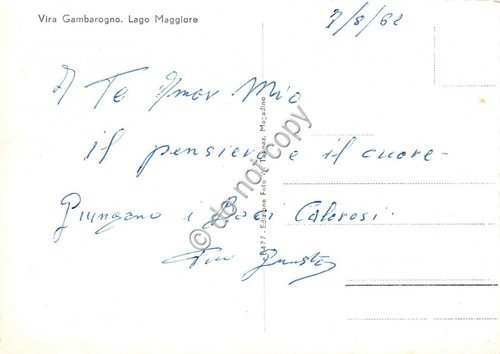 Vira Gambarogno. Lago Maggiore
7/8/62
A Te Amor Mio
il pensiero e il cuore-
Giungano i Baci Calorosi.
Tuo
8477 - Edizione Foto Magadino
© do not copy